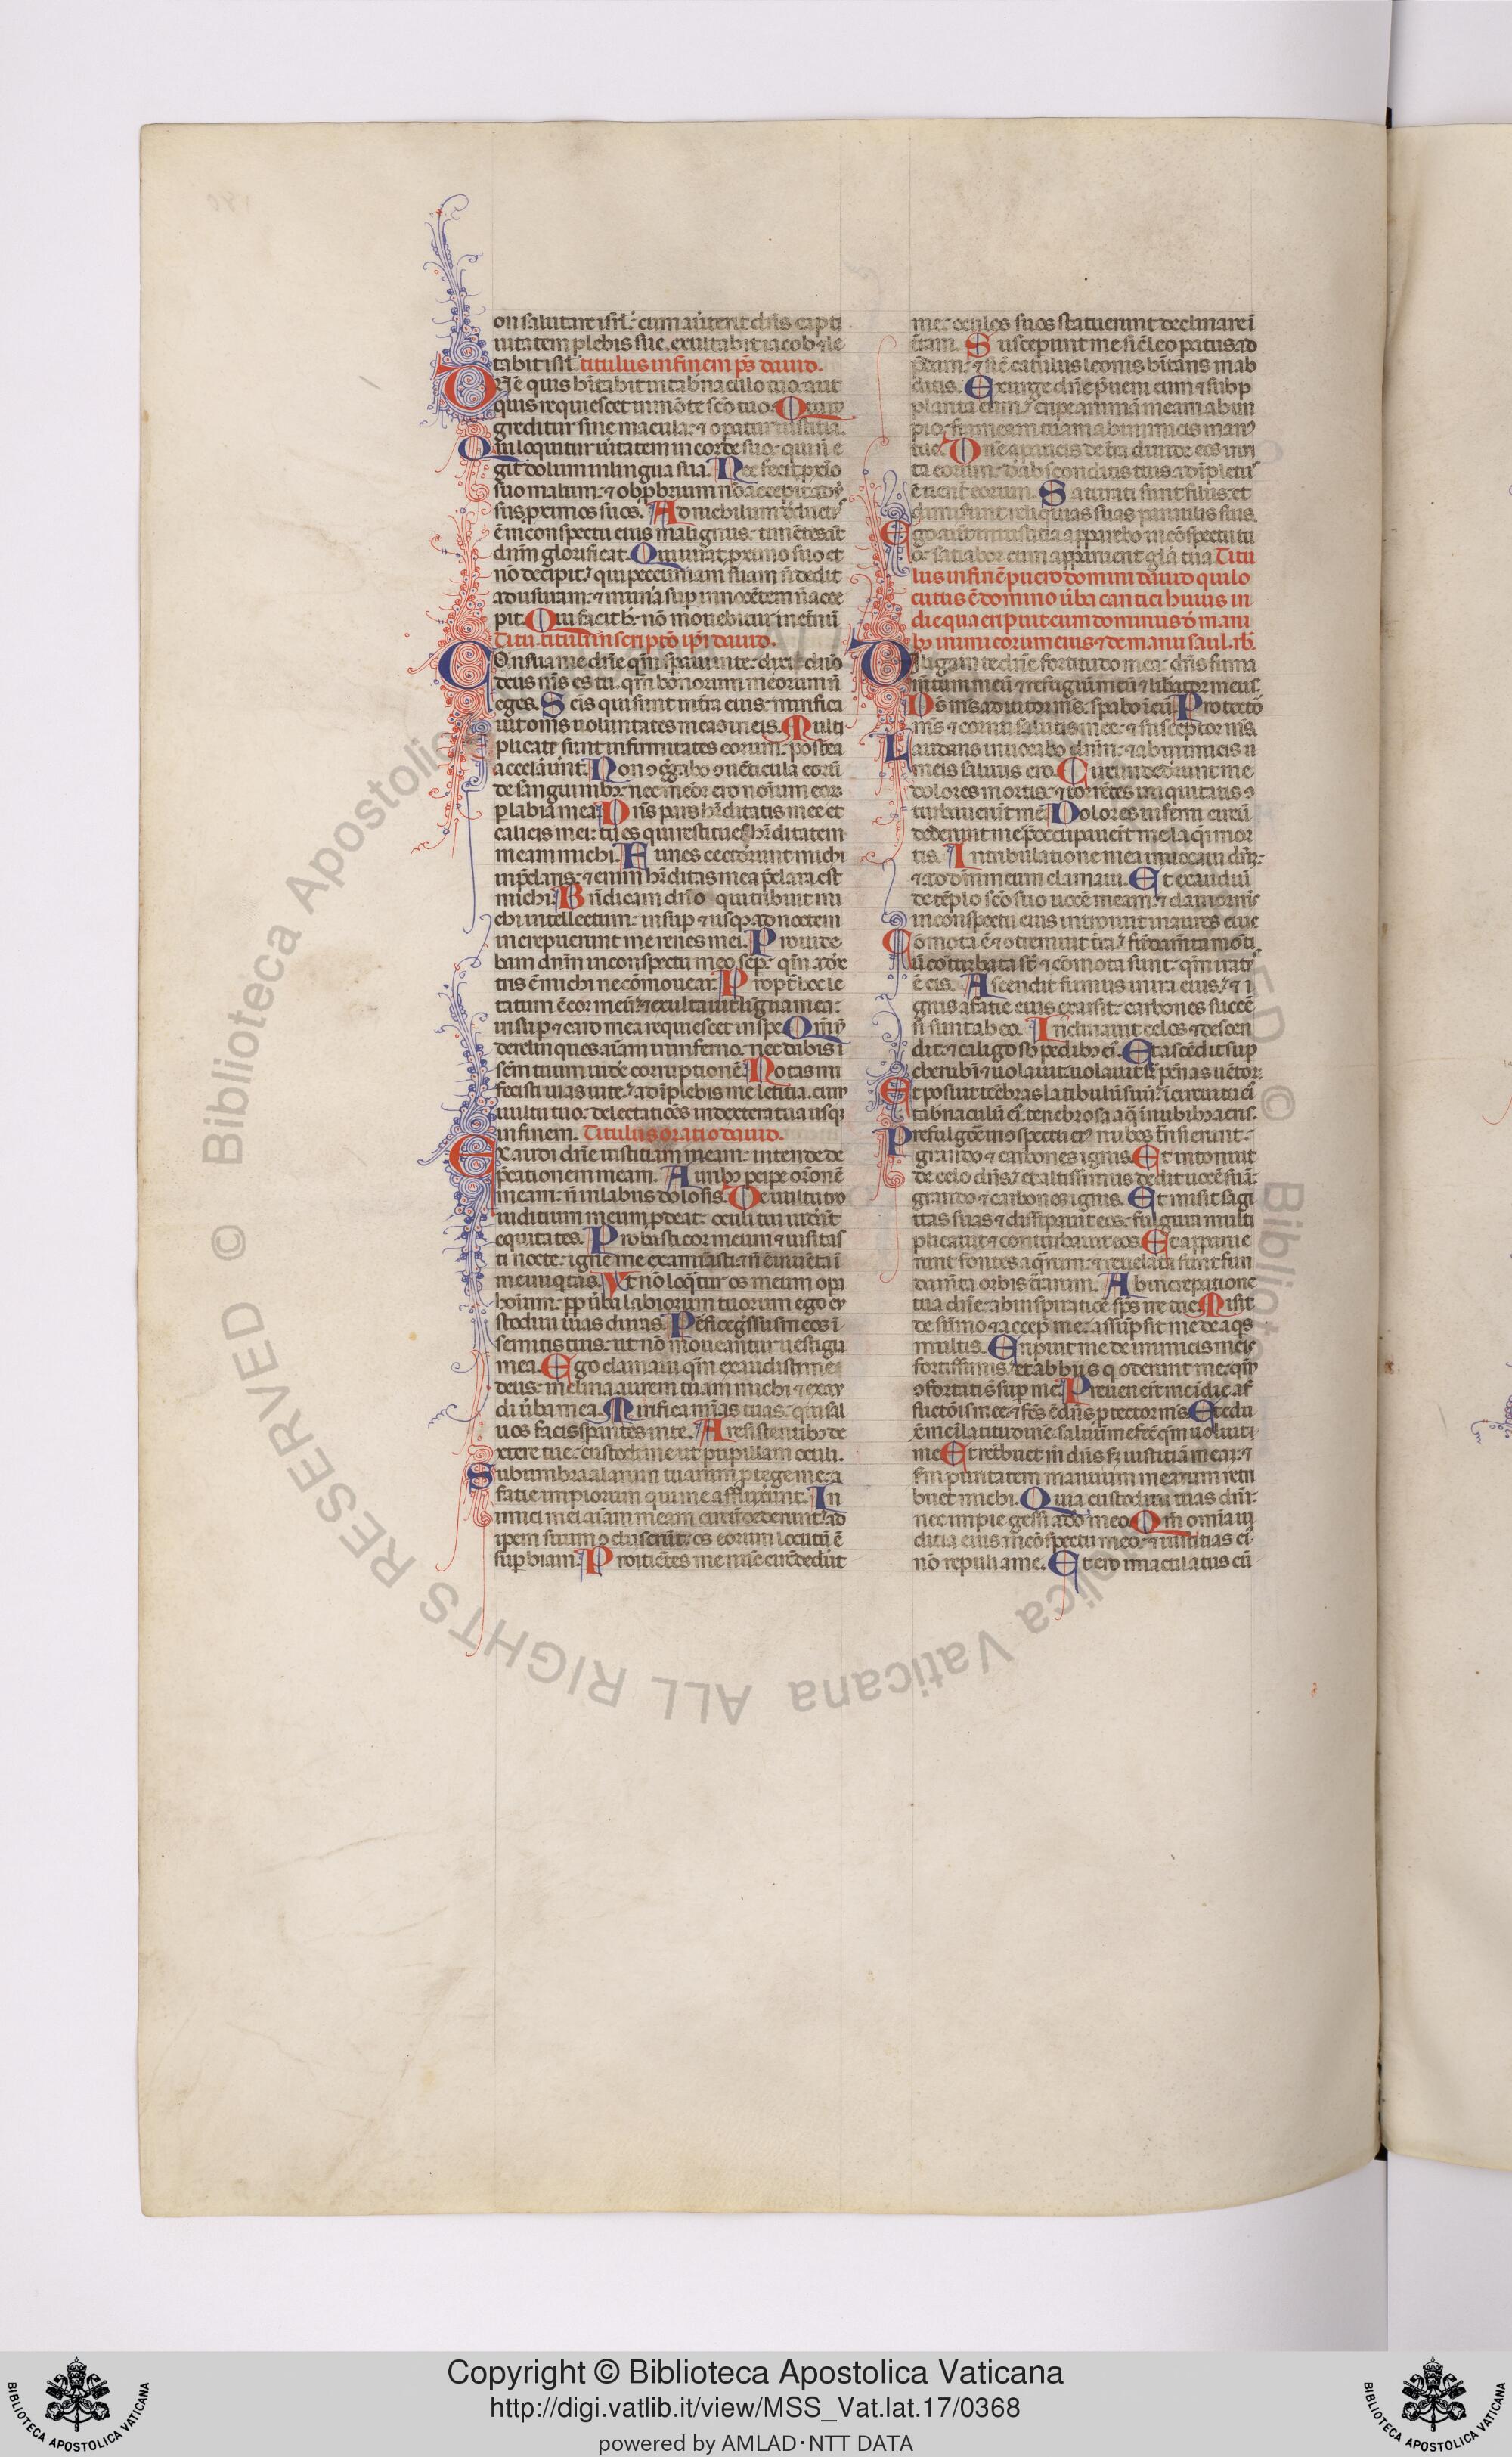 on salutare isrl̄: cum au̇terit dn̄s capti
uitatem plebis sue. exultabit iacob ⁊ le
tabit̉ isrl̄. titulus in finem ps̄ dauid.
DNe quis hītabit in tab̄naculo tuo: aut
quis requiescet in mōte scō tuo. Qui in
greditur sine macula: ⁊ opatur iustitiā.
Qui loquitur ūitatem in corde suo: qui n̄ e
git dolum in lingua sua. Nec fecit pxīo
suo malum: ⁊ obp̄brium nō accepit adv̉
sus proximos suos. Ad nichilum
ē in conspectu eius malignus: timētes aūt
dnm̄ glorificat. Qui iurat proximo suo et
nō decipit: qui peccuniam suam n̄ dedit
ad usuram: ⁊ mun̄a sup innocētem n̄ acce
pit. Qui facit h̄: nō mouebitur in et̄nū
Titu. tituli inscriptō ipī dauid.
COnserua me dn̄e qm̄ speraui in te: dixi dn̄o
deus m̄s es tu. qm̄ bonorum meorum n̄
eges. Scīs qui sunt in t̄ra eius: mirifica
uit om̄s uoluntates meas in eis. Multi
plicate sunt infirmitates eorum: postea
accelaūunt. Non ꝯg̉gabo ꝯuēticula eorū
de sanguinibꝫ: nec meōr ero noīum eorꝫ
p labia mea. Dn̄s pars h̄editatis mee et
calicis mei: tu es qui restitues h̄editatem
meam michi. Funes ceciderunt michi
in p̄claris: ⁊ enim h̄editas mea p̄clara est
michi. Bn̄dicam dn̄o qui tribuit mi
chi intellectum: insup ⁊ usqꝫ ad noctem
increpuerunt me renes mei. Prouide
bam dnm̄ in conspectu meo sep: qm̄ a dex
tris ē michi ne cōmouear. Propt̄ hoc le
tatum ē cor meū: ⁊ exultauit lingua mea:
insup ⁊ caro mea requiescet in spe. Qm̄ n̄
derelinques aīam in inferno: nec dabis
scm̄ tuum uidere corruptionē. Notas mi
fecisti uias uite: adīplebis me letitia cum
uultu tuo: delectatiōes in dextera tua usqꝫ
in finem. Titulus oratio dauid.
EXaudi dn̄e iustitiam meam: intende de
p̄cationem meam. Auribꝫ pcipe orōnē
meam: n̄ in labiis dolosis. De uultu tuo
iuditium meum pdeat: oculi tui uideāt
equitates. Probasti cor meum ⁊ uisitas
ti nocte: igne me examīasti: ⁊ n̄ ē inuēta ī
me iniq̄tas. Ut nō loq̄tur os meum opa
hoīum: pp ūba labiorum tuorum ego cu
stodiui uias duras. Pfice gressus meos ī
semitis tuis: ut nō moueantur uestigia
mea. Ego clamaui qm̄ exaudisti me
deus: inclina aurem tuam michi ⁊ exau
di ūba mea. Mirifica mīas tuas: qui sal
uos facis sperantes in te. A resistentibꝫ de
xtere tue: custodi me ut pupillam oculi.
Sub umbra alarum tuarum protege me: a
facie impiorum qui me afflixerunt. In
imici mei aīam meam circūdederunt: ad
ipem suum ꝯcluserūt: os eorum locutū ē
supbiam. Proitiētes me nūc circūdedūt
me: oculos suos statuerunt declinare ī
t̄ram. Susceperunt me sic̄ leo patus ad
p̄dam: ⁊ sic̄ catulus leonis hītans in ab
ditis. Exurge dn̄e p̄ueni eum ⁊ subp
planta eum: eripe animā meam ab im
pio: frameam tuam ab inimicis man̉
tue. Dn̄e a paucis de t̄ra diuide eos in ui
ta eorum: d̄ absconditis tuis adīpletus
ē uent̄ eorum. Saturati sunt filiis: et
dimiserunt reliquias suas paruulis suis.
Ego aūt in iustitia apparebo in cōspectu tu
o: satiabor cum apparuerit glīa tua. Titu
lus in finē puero domini dauid qui lo
cutus ē domino ūba cantici huius in
die qua eripuit eum dominus d̄ mani
bꝫ inimicorum eius ⁊ de manu saul. rb̄.
DIligam te dn̄e fortitudo mea: dn̄s firma
mtum meū ⁊ refugiū meū ⁊ liberator meus.
Ds̄ m̄s adiutor m̄s: sperabo ī eū. Protecto
m̄s ⁊ cornu salutis mee: ⁊ susceptor m̄s.
Laudans inuocabo dnm̄: ⁊ ab inimicis
meis saluus ero. Circundederunt me
dolores mortis: ⁊ torrētes iniquitatis ꝯ
turbauerūt me. Dolores inferni circū
dederunt me: p̄occupauerūt me laq̄i mor
tis. In tribulatione mea inuocaui dnm̄:
⁊ ad dm̄ meum clamaui. Et exaudiū
de tēplo scō suo uocē meam: ⁊ clamor m̄s
in conspectu eius introiuit in aures eius
Cōmota ē ⁊ ꝯtremuit t̄ra: fundam̄ta mōti
ū conturbata st̄ ⁊ cōmota sunt: qm̄ irat̉
ē eis. Ascendit fumus in ira eius: ⁊ i
gnis a facie eius exarsit: carbones succē
si sunt ab eo. Inclinauit celos ⁊ descen
dit: ⁊ caligo sb̄ pedibꝫ eỉ. Et ascēdit sup
cherubin ⁊ uolauit: uolauit sup pēnas uētorꝫ.
Et posuit tenebras latibulū suū: ī circuitu eỉ
tab̄naculū eỉ. tenebrosa aq̄ ī nubibꝫ aeris.
Prefulgōe in ꝯspectu eỉ nubes t̄nsierunt:
grando ⁊ carbones ignis. Et intonuit
de celo dn̄s: et altissimus dedit uocē suā:
grando ⁊ carbones ignis. Et misit sagi
ttas suas ⁊ dissipauit eos: fulgura multi
plicauit ⁊ conturbauit eos. Et apparue
runt fontes aq̄rum: ⁊ reuelata sunt fun
dam̄ta orbis t̄rarum. Ab increpatione
tua dn̄e: ab inspiratiōe sps̄ ire tue. Misit
de sūmo ⁊ accepit me: assūpsit me de aq̄s
multis. Eripuit me de inimicis meis
fortissimis: et ab hiis q̄ oderunt me: qm̄
ꝯfortati s̄ sup me. Preuenerūt me ī die af
flictōis mee: ⁊ fc̄s ē dn̄s protector m̄s. Et edu
xit me ī latitudīne: saluum me fecit qm̄ uoluit
me. Et retribuet m̄ dn̄s sꝫ iustitiā meā: ⁊
sm̄ puritatem manuum mearum retri
buet michi. Quia custodiui uias dn̄i:
nec impie gessi a deo meo. Qm̄ omīa iu
ditia eius in cōspectu meo: ⁊ iustitias eỉ
nō repuli a me. Et ero immaculatus cū
© Biblioteca Apostolica Vaticana ALL RIGHTS RESERVED
Copyright © Biblioteca Apostolica Vaticana
http://digi.vatlib.it/view/MSS_Vat.lat.17/0368
powered by AMLAD·NTT DATA
BIBLIOTECA APOSTOLICA VATICANA
BIBLIOTECA APOSTOLICA VATICANA